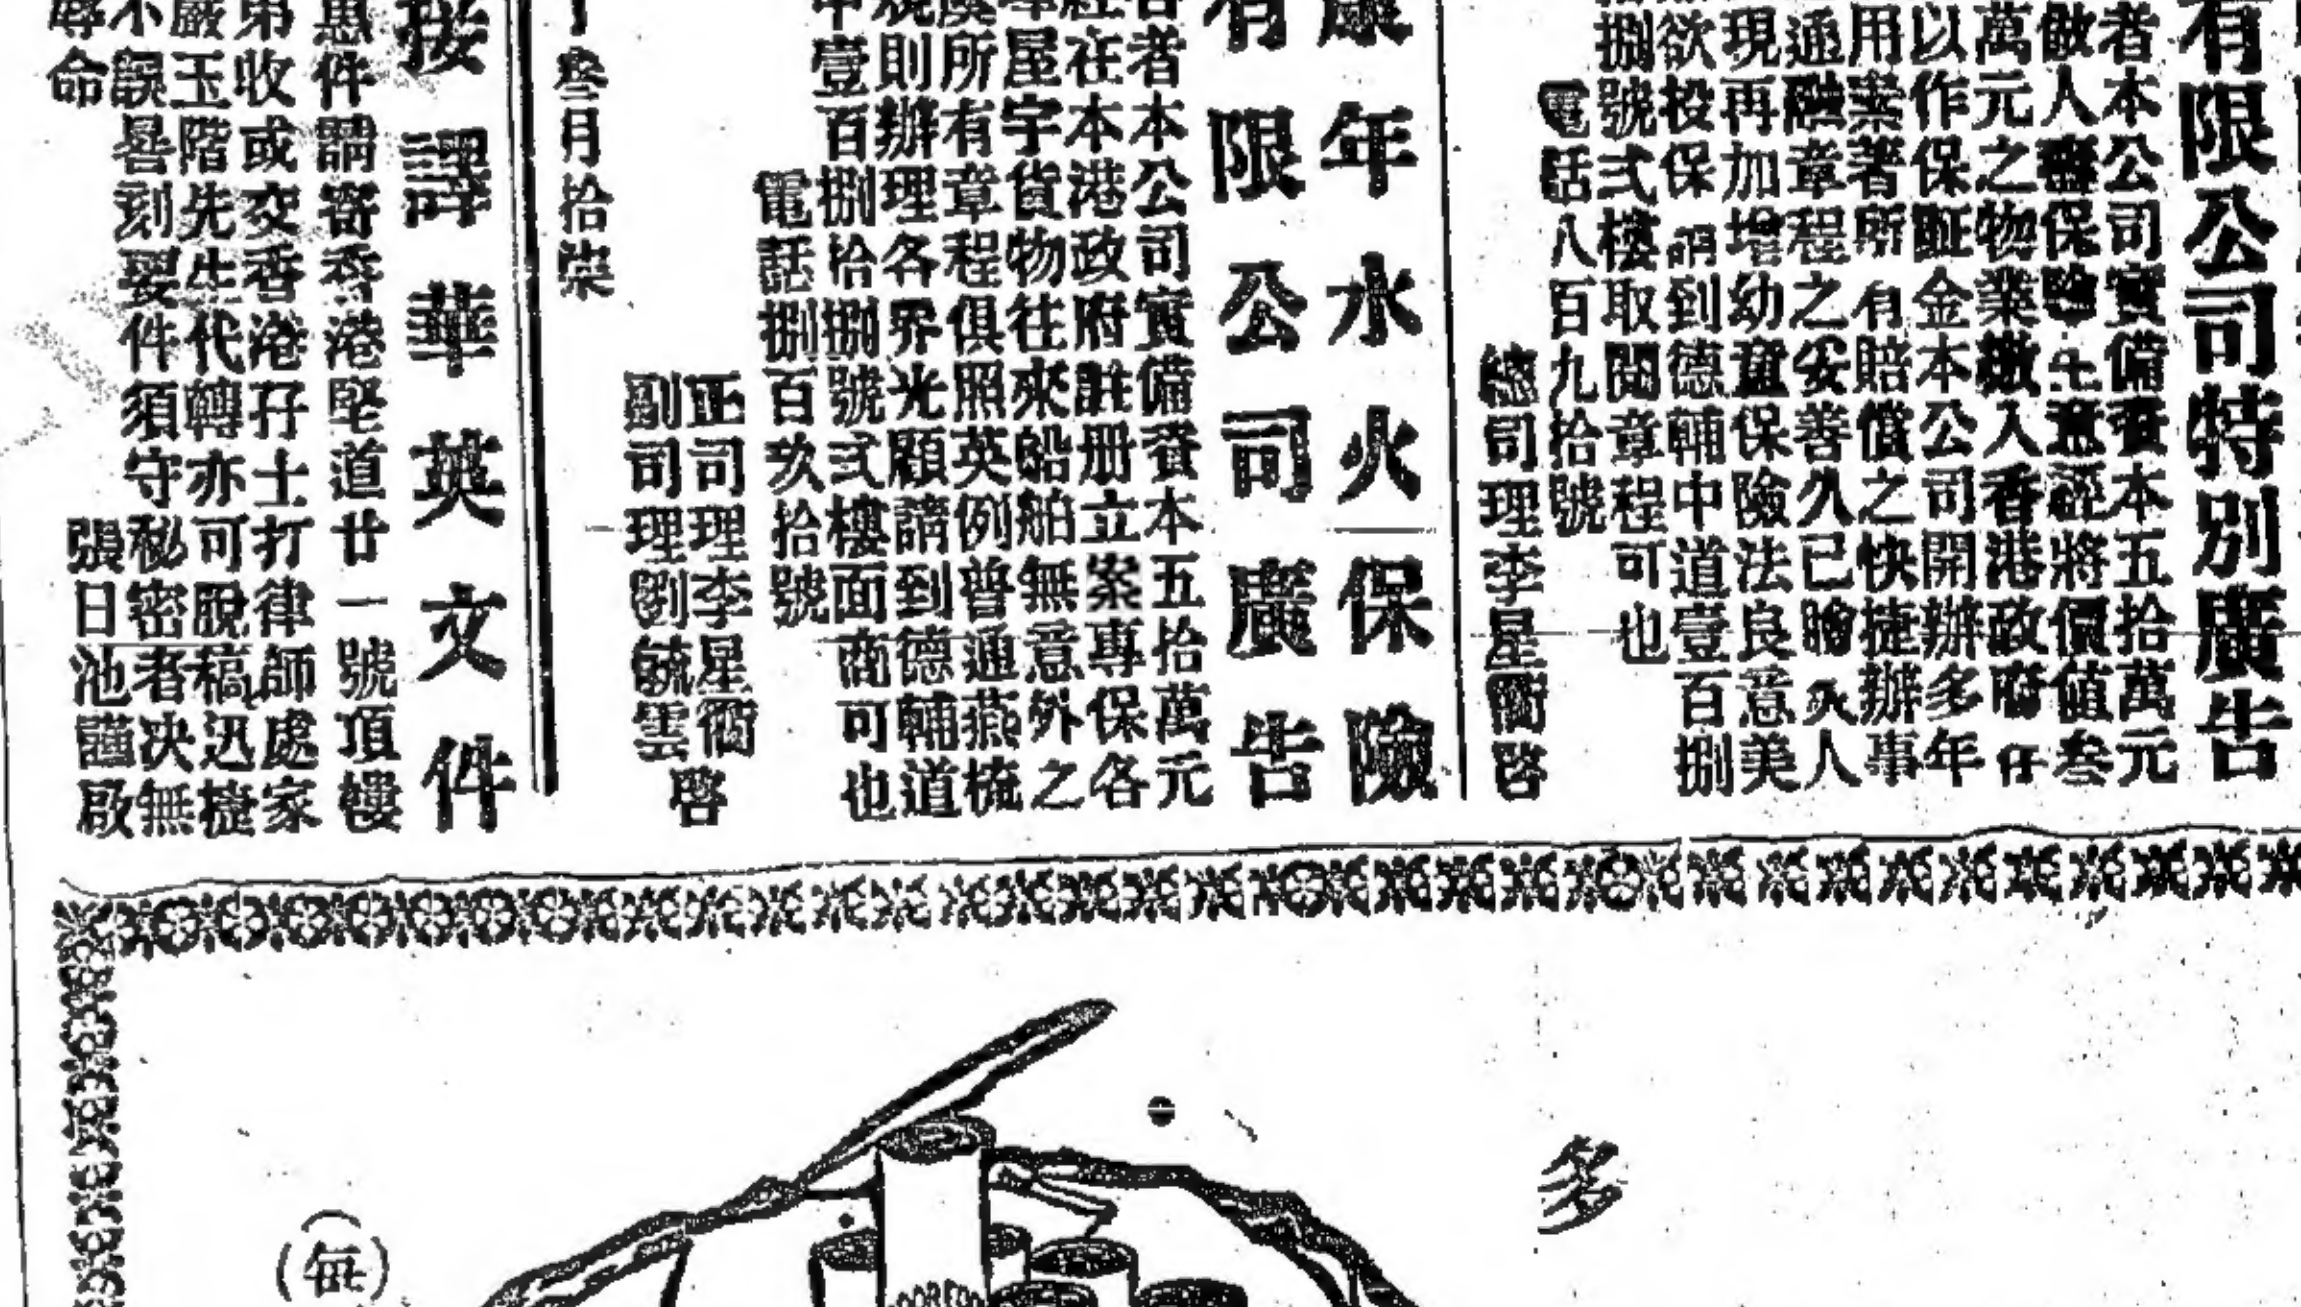 有限公司特別廣告
者本公司實備資本五拾萬元
做人壽保險生意經將價值叁
萬元之物業繳入香港政府
以作保証金本公司開辦多年
用款著所有賠償之快捷辦事
通融章程之妥善久已膾炙人
現再加增幼童保險法良意美
欲投保請到德輔中道壹百捌
捌號弍樓取閱章程可也
電話八百九拾號
總司理李星衢啓
康年水火保險
有限公司廣告
者本公司實備資本五拾萬元
經在本港政府註册立案專保各
屋宇貨物往來船舶無意外之
虞所有章程俱照英例普通燕梳
規則辦理各界光顧請到德輔道
中壹百捌拾捌號弍樓面商可也
電話捌百玖拾號
正司理李星衢
副司理劉毓雲
啓
叁月拾柒
接譯華英文件
惠件請寄香港堅道廿一號頂樓
弟收或交香港孖士打律師處家
嚴玉階先生代轉亦可脫稿迅捷
不誤晷刻要件須守秘密者决無
辱命
張日池謹啟
多
(每)